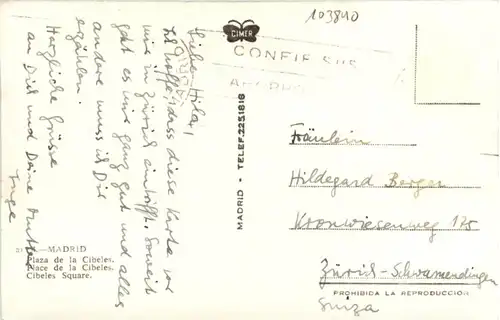 103840
CIMER
CONFIE SUS
Liebe Hilde!
Ich hoffe, dass diese Karte vor
mir in Zürich eintrifft. Soweit
geht es uns ganz gut und alles
andere muss ich Dir
erzählen.
Herzliche Grüsse
an Dich und Deine Mutter
Inge
MADRID - TELEF. 2251818
Fräulein
Hildegard Berger
Kronwiesenweg 125
Zürich-Schwamendingen
Suiza
PROHIBIDA LA REPRODUCCION
21 - MADRID
Plaza de la Cibeles.
Place de la Cibeles.
Cibeles Square.